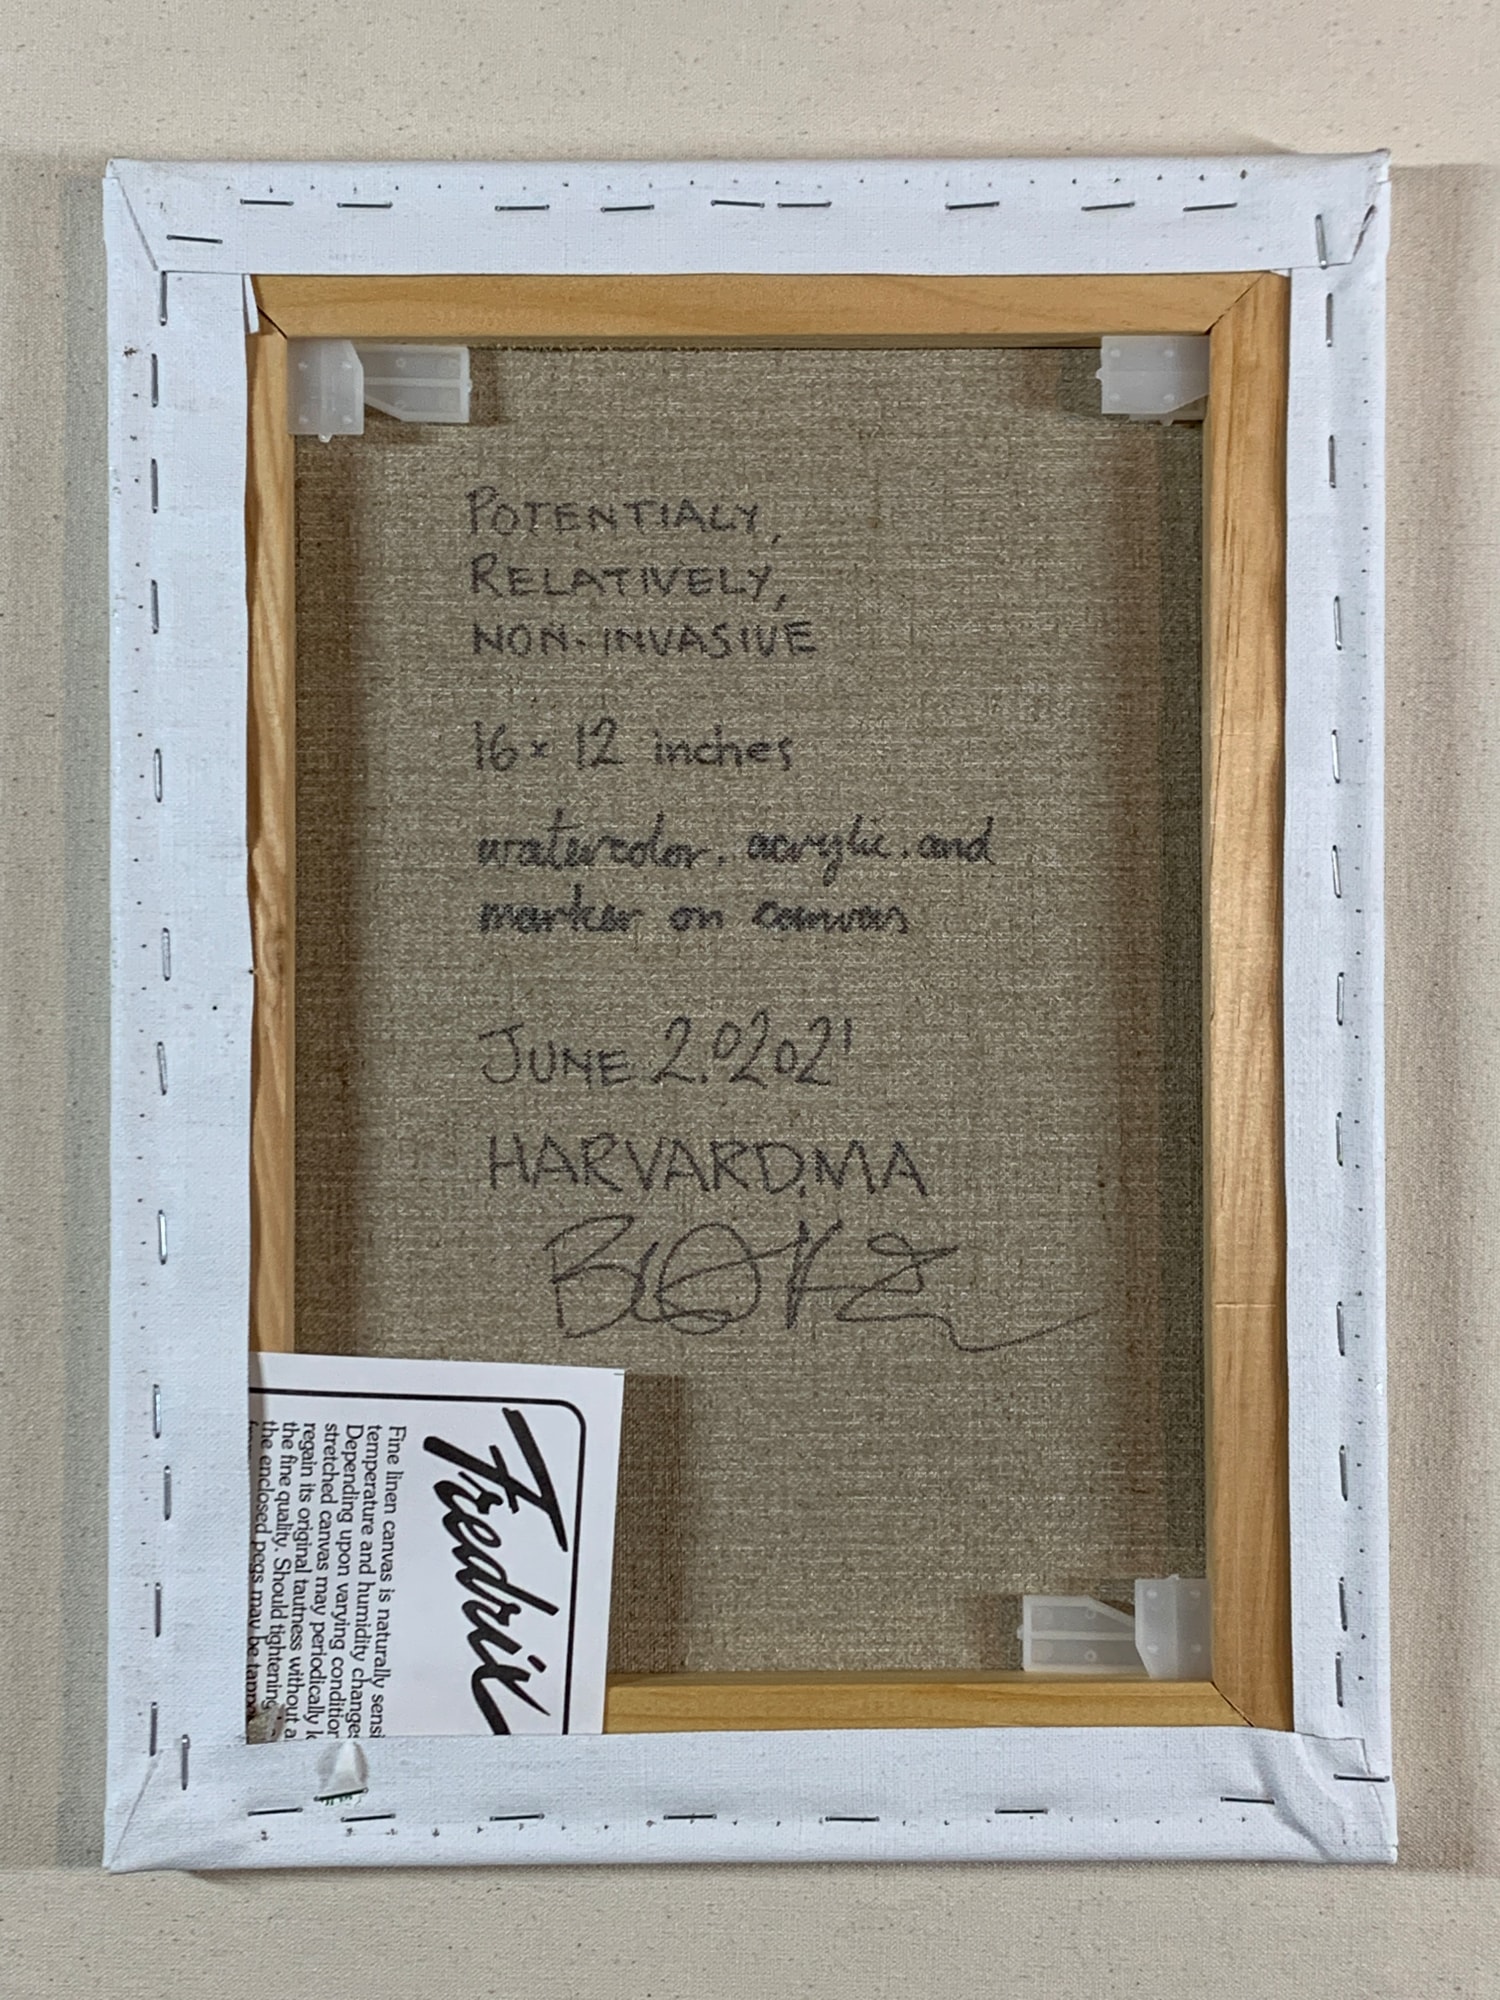 POTENTIALY,
RELATIVELY,
NON-INVASIVE
16 x 12 inches
watercolor, acrylic, and
marker on canvas
JUNE 2, 02021
HARVARD, MA
Fredrix
Fine linen canvas is naturally sensi
temperature and humidity changes
Depending upon varying condition
stretched canvas may periodically l
regain its original tautness without a
the fine quality. Should tightening
the enclosed pegs may be tapp